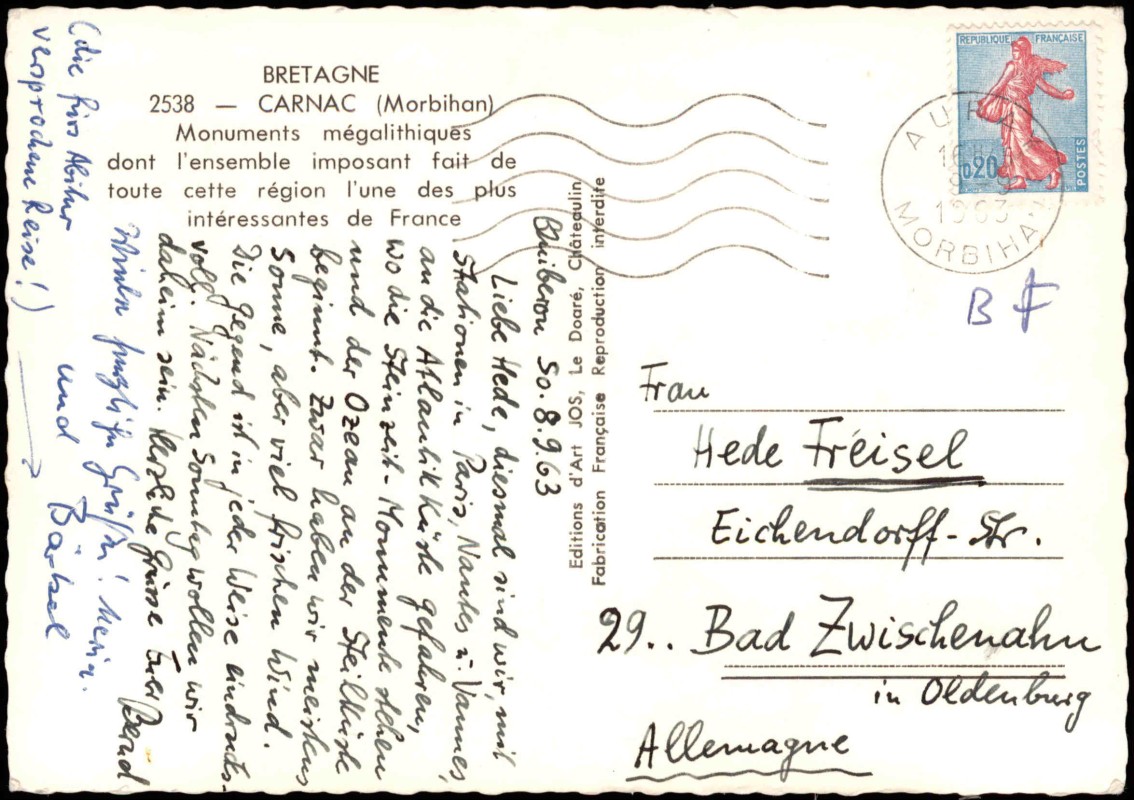 BRETAGNE
2538 — CARNAC (Morbihan)
Monuments mégalithiques
dont l'ensemble imposant fait de
toute cette région l'une des plus
intéressantes de France
Quiberon So. 8.9.63
Liebe Hede, diesmal sind wir, mit
Stationen in Paris, Nantes u. Vannes,
an die Atlantikküste gefahren,
wo die Steinzeit-Monumente stehen
und der Ozean an der Steilküste
beginnt. Zwar haben wir meistens
Sonne, aber viel frischen Wind.
Die Gegend ist in jeder Weise eindrucks-
voll. Nächsten Sonntag wollen wir
daheim sein. Herzliche Grüsse Euer Bernd
herzliche Grüße!
und Bärbel
(die fürs Abitur
versprochene Reise!)
Editions d'Art JOS, Le Doaré, Châteaulin
Fabrication Française Reproduction interdite
REPUBLIQUE FRANÇAISE
0,20
POSTES
AURAY
1963
MORBIHAN
B F
Frau
Hede Freisel
Eichendorff-Str.
29.. Bad Zwischenahn
in Oldenburg
Allemagne